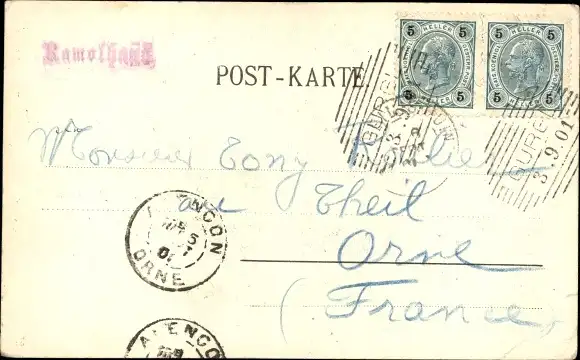 Ramolhaus
POST-KARTE.
5 HELLER 5
5 5
5 HELLER 5
5 5
GURGL
3 9 01
GURGL
3.9.01
Monsieur Tony
au Theil
Orne
(France)
ALENCON
5
01
ORNE
ALENCO